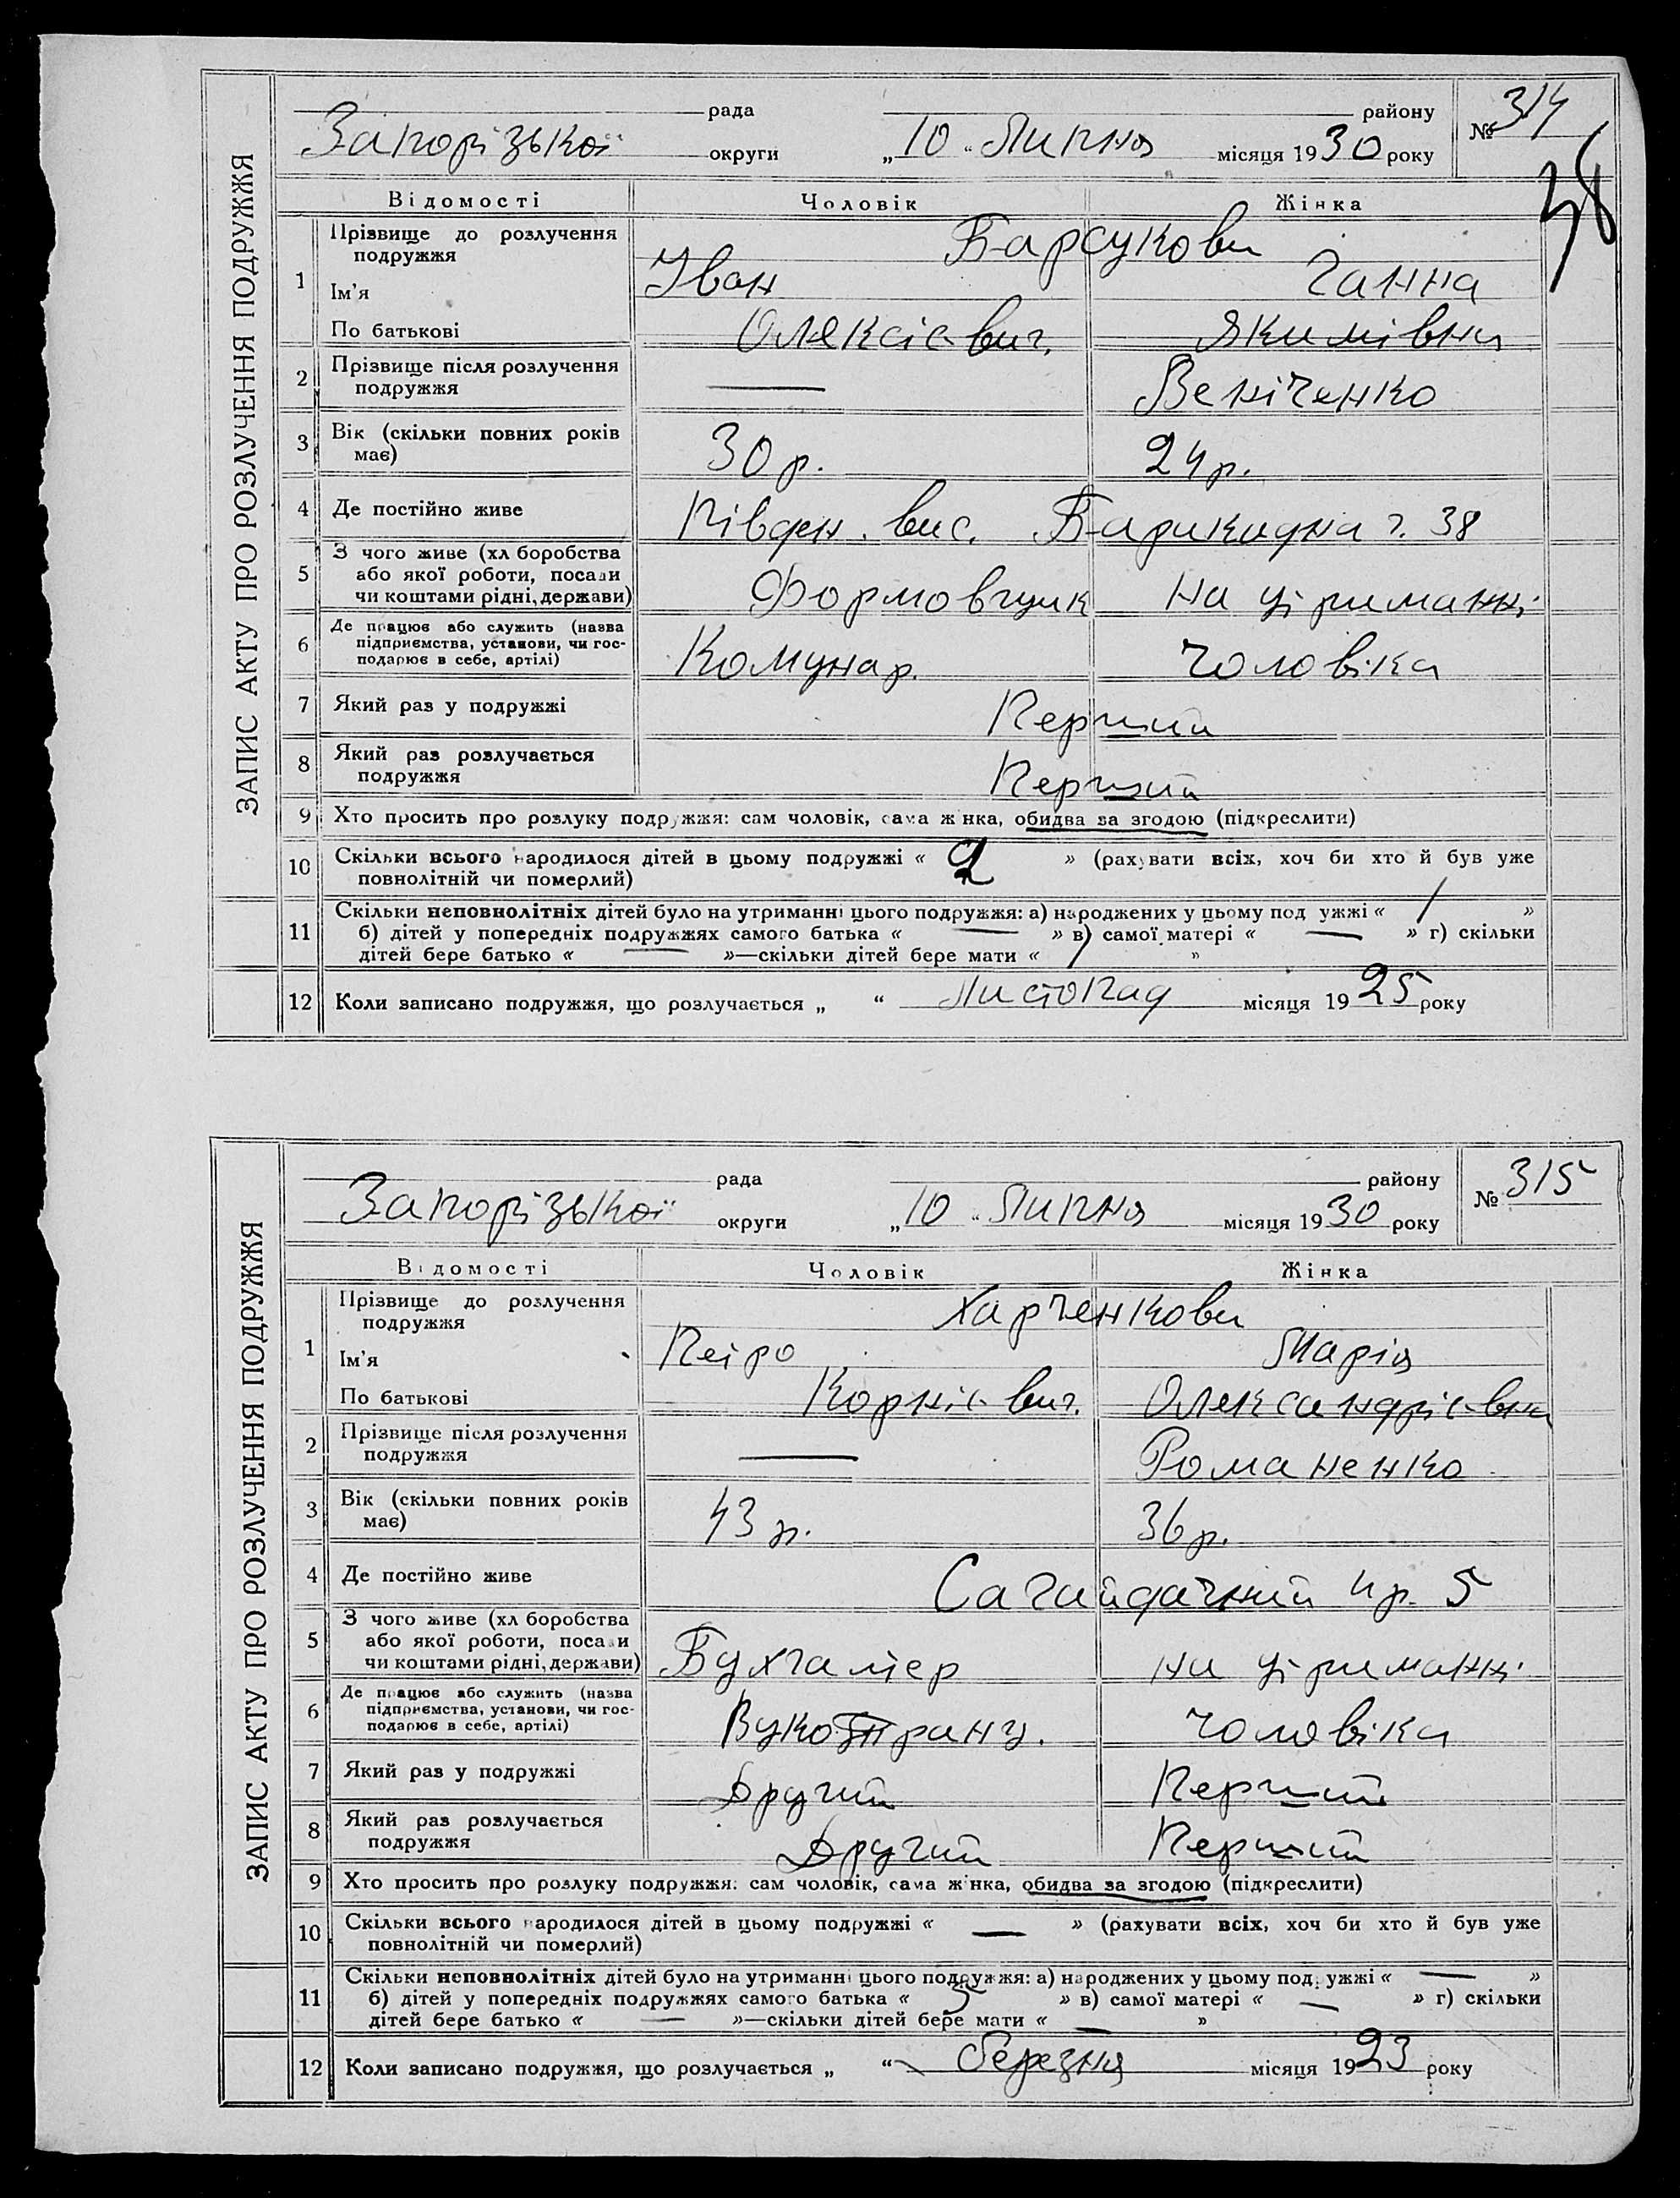 ЗАПИС АКТУ ПРО РОЗЛУЧЕННЯ ПОДРУЖЖЯ
рада району № 314
Запорізької округи „10“ Липня місяця 1930 року
38
Відомості Чоловік Жінка
1 Прізвище до розлучення подружжя Барсукови
Ім'я Іван Ганна
По батькові Олексієвич. Якимівна
2 Прізвище після розлучення подружжя — Веніченко
3 Вік (скільки повних років має) 30 р. 24 р.
4 Де постійно живе Півден. вис. Барикадна г. 38
5 З чого живе (хліборобства або якої роботи, посади чи коштами рідні, держави) Формовщик на утриманні
6 Де працює або служить (назва підприємства, установи, чи господарює в себе, артілі) Комунар. чоловіка
7 Який раз у подружжі Перший
8 Який раз розлучається подружжя Перший
9 Хто просить про розлуку подружжя: сам чоловік, сама жінка, обидва за згодою (підкреслити)
10 Скільки всього народилося дітей в цьому подружжі « 2 » (рахувати всіх, хоч би хто й був уже
повнолітній чи померлий)
11 Скільки неповнолітніх дітей було на утриманні цього подружжя: а) народжених у цьому подружжі « 1 »
б) дітей у попередніх подружжях самого батька « — » в) самої матері « — » г) скільки
дітей бере батько « — »—скільки дітей бере мати « 1 »
12 Коли записано подружжя, що розлучається „ “ Листопад місяця 1925 року
ЗАПИС АКТУ ПРО РОЗЛУЧЕННЯ ПОДРУЖЖЯ
рада району № 315
Запорізької округи „10“ Липня місяця 1930 року
Відомості Чоловік Жінка
1 Прізвище до розлучення подружжя Харченкови
Ім'я Петро Марія
По батькові Корнієвич. Олександрієвна
2 Прізвище після розлучення подружжя — Романенко
3 Вік (скільки повних років має) 43 р. 36 р.
4 Де постійно живе Сагайдачний пр. 5
5 З чого живе (хліборобства або якої роботи, посади чи коштами рідні, держави) Бухгалтер на утриманні
6 Де працює або служить (назва підприємства, установи, чи господарює в себе, артілі) чоловіка
7 Який раз у подружжі Другий Перший
8 Який раз розлучається подружжя Другий Перший
9 Хто просить про розлуку подружжя: сам чоловік, сама жінка, обидва за згодою (підкреслити)
10 Скільки всього народилося дітей в цьому подружжі « — » (рахувати всіх, хоч би хто й був уже
повнолітній чи померлий)
11 Скільки неповнолітніх дітей було на утриманні цього подружжя: а) народжених у цьому подружжі « — »
б) дітей у попередніх подружжях самого батька « 3 » в) самої матері « — » г) скільки
дітей бере батько « — »—скільки дітей бере мати « — »
12 Коли записано подружжя, що розлучається „ “ березня місяця 1923 року